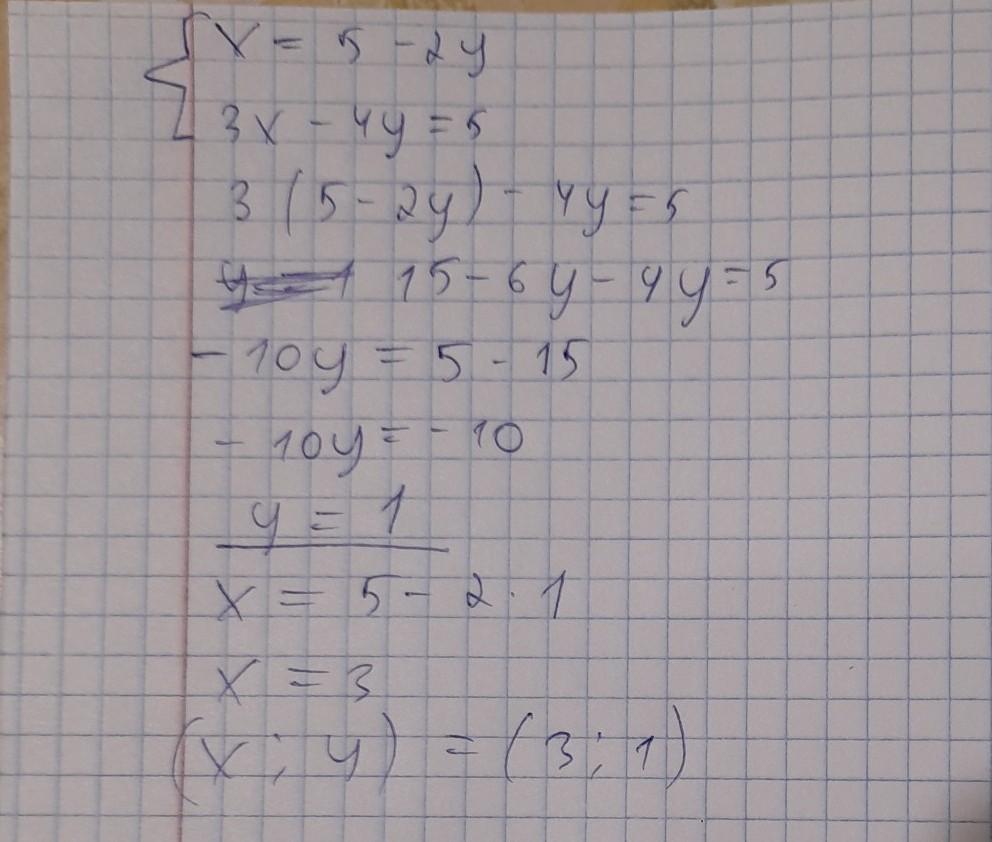 x = 5 - 2y
3x - 4y = 5
3 (5 - 2y) - 4y = 5
15 - 6y - 4y = 5
- 10y = 5 - 15
- 10y = - 10
y = 1
x = 5 - 2 · 1
x = 3
(x ; y) = (3 ; 1)